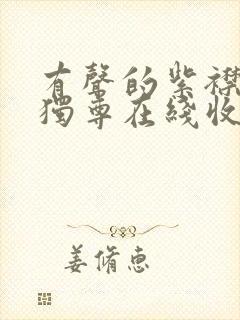 有聲的紫襟
獨尊在綫收
姜脩惠